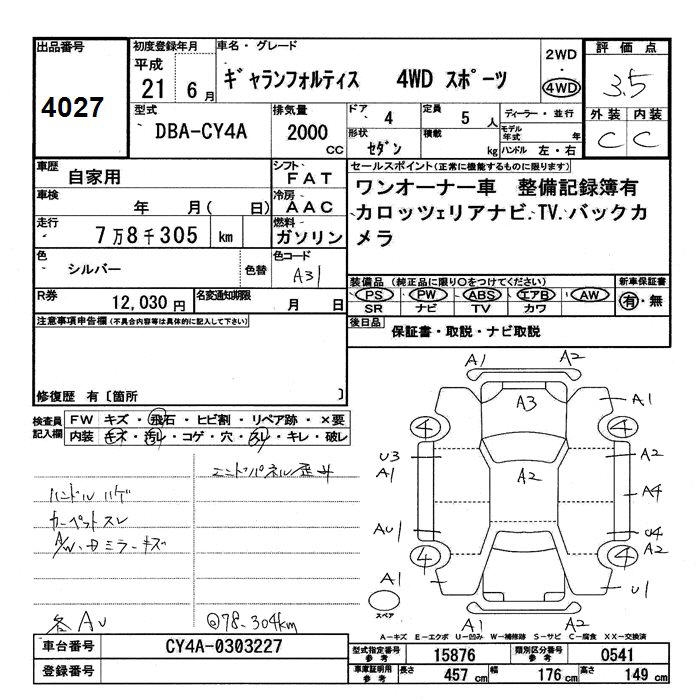 出品番号 初度登録年月 車名・グレード 2WD 評価点
4027 平成 21 6月 ギャランフォルティス 4WD スポーツ 4WD 3.5
型式 排気量 ドア 定員 ディーラー・並行 外装 内装
DBA-CY4A 2000 CC 4 5 人 モデル年式 年 C C
形状 積載
セダン kg ハンドル 左・右
車歴 自家用 シフト FAT セールスポイント(正常に機能するものに限ります)
車検 年 月( 日) 冷房 AAC ワンオーナー車 整備記録簿有
走行 7万8千305 km 燃料 ガソリン カロッツェリアナビ.TV.バックカ
メラ
色 シルバー 色替 色コード A31
装備品 (純正品に限り○をつけてください) 新車保証書
R券 12,030円 名変通知期限 月 日 PS PW ABS エアB AW 有・無
SR ナビ TV カワ
注意事項申告欄(不具合内容等は具体的に記入して下さい) 後日品 保証書・取説・ナビ取説
修復歴 有〔箇所 〕
検査員記入欄 FW キズ・飛石・ヒビ割・リペア跡・×要
内装 キズ・汚レ・コゲ・穴・スレ・キレ・破レ
エンドパネル歪み
ハンドルハゲ
カーペットスレ
A/W・ドミラーキズ
各AU @78.304km
A1 A2
A3 A1
4 4
U3 A2
A1 A2
A4
AU1 U4
4 4 A2
A1 U1
スペア
A1 A2
A-キズ E-エクボ U-凹み W-補修跡 S-サビ C-腐食 XX-交換済
車台番号 CY4A-0303227 型式指定番号参考 15876 類別区分番号参考 0541
登録番号 車庫証明用参考 長さ 457 cm 幅 176 cm 高さ 149 cm